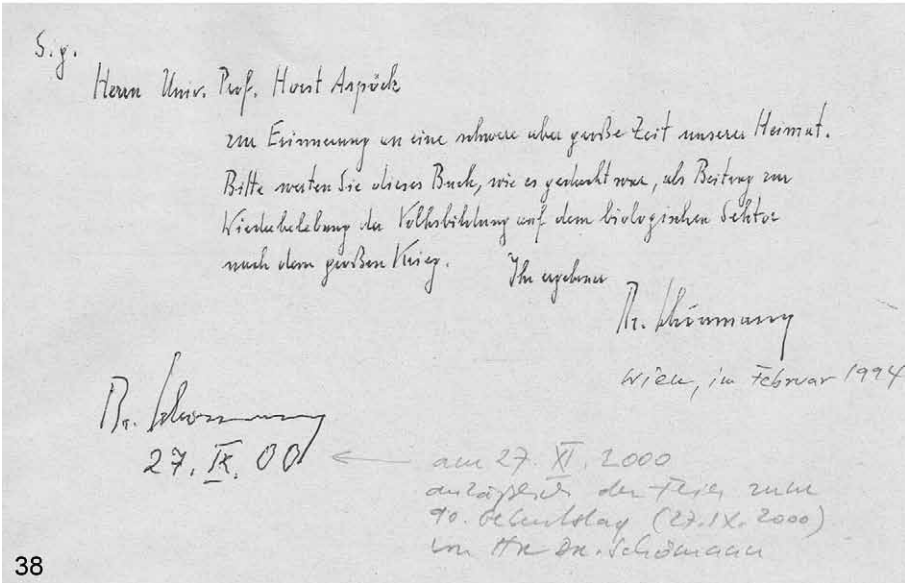 S. g.
Herrn Univ. Prof. Horst Aspöck
zur Erinnerung an eine schwere aber große Zeit unserer Heimat.
Bitte werten Sie dieses Buch, wie es gedacht war, als Beitrag zur
Wiederbelebung der Volksbildung auf dem biologischen Sektor
nach dem großen Krieg. Ihr ergebener
Dr. Schönmann
Wien, im Februar 1994
Dr. Schönmann
27. IX. 00
am 27. XI. 2000
anläßlich der Feier zum
90. Geburtstag (27. IX. 2000)
von Hr. Dr. Schönmann
38